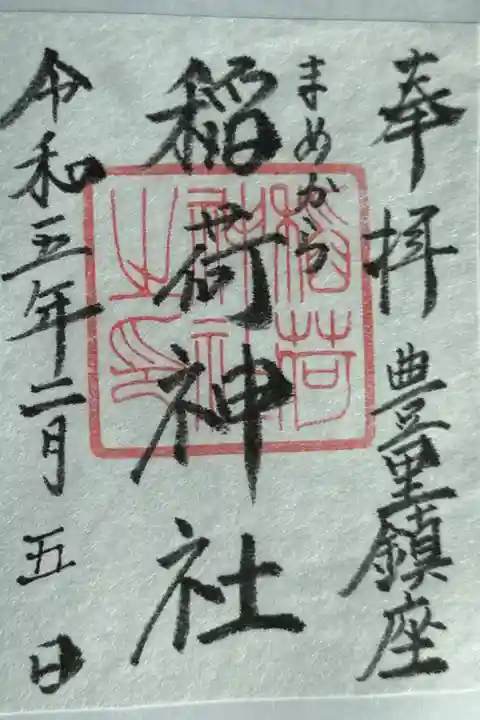 奉拝 豊里鎮座
まめから
稲荷神社
令和五年二月五日
稲荷
神社
之印